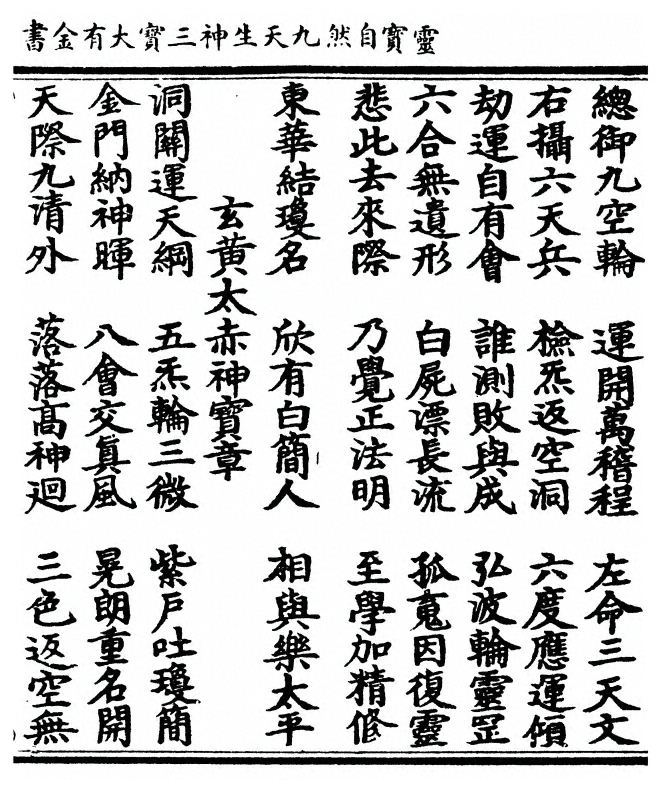 靈寶自然九天生神三寶大有金書
總御九空輪 運開萬稽程 左命三天文
右攝六天兵 檢炁返空洞 六度應運傾
劫運自有會 誰測敗與成 弘波輪靈罡
六合無遺形 白屍漂長流 孤䰟因復靈
悲此去來際 乃覺正法明 至學加精修
東華結瓊名 欣有白簡人 相與樂太平
玄黃太赤神寶章
洞關運天綱 五炁輪三微 紫戶吐瓊簡
金門納神暉 八會交真風 晃朗重名開
天際九清外 落落高神迴 三色返空無